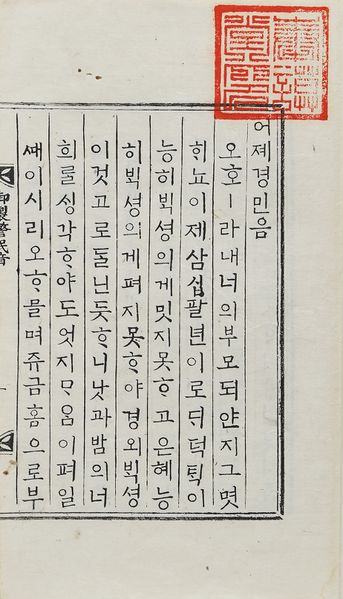 어졔경민음
오호ㅣ라내너의부모되얀지그몃
ᄒᆡ뇨이제삼십팔년이로ᄃᆡ덕ᄐᆡᆨ이
능히ᄇᆡᆨ셩의게밋지못ᄒᆞ고은혜능
히ᄇᆡᆨ셩의게펴지못ᄒᆞ야경외ᄇᆡᆨ셩
이것고로돌닌듯ᄒᆞ니낫과밤의너
희를ᄉᆡᆼ각ᄒᆞ야도엇지ᄆᆞ음이펴일
ᄣᅢ이시리오ᄒᆞ믈며쥬금홈으로부
御製警民音